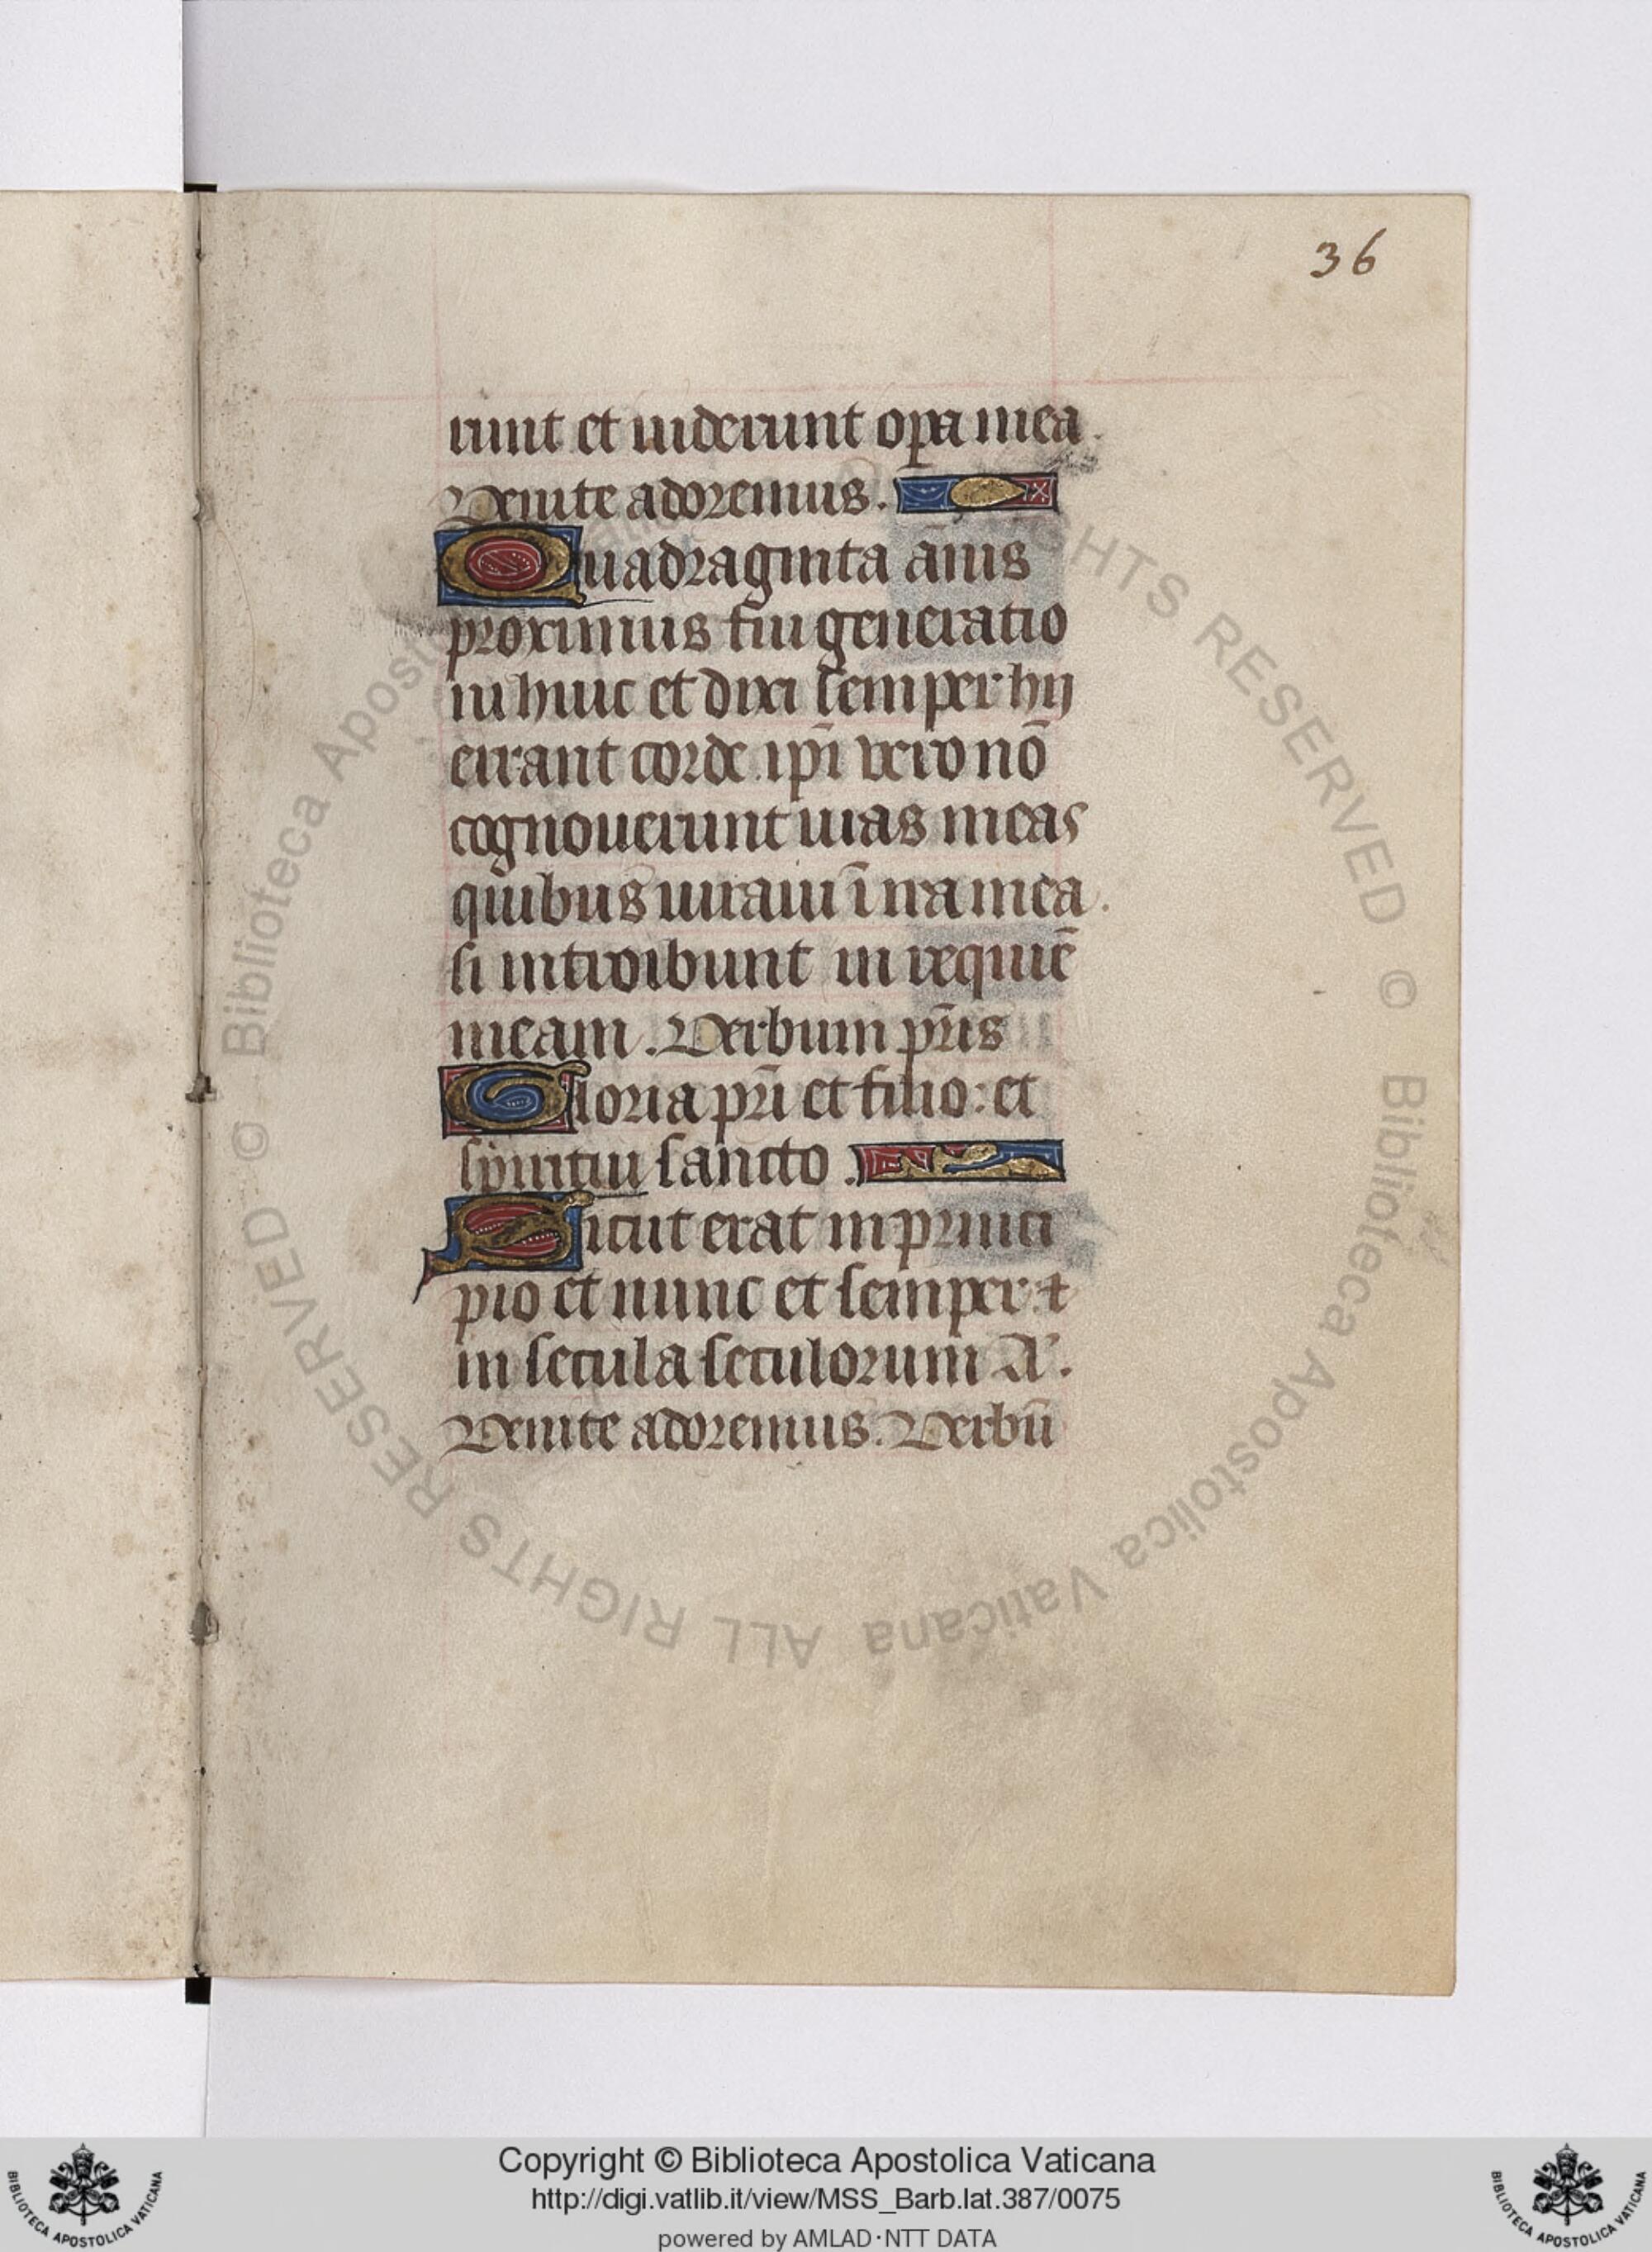 36
runt et uiderunt opa mea.
Venite adoremus.
Quadraginta ānis
proximus fui generatio
ni huic et dixi semper hij
errant corde. ipī vero nō
cognouerunt uias meas
quibus iuraui ī ira mea.
si introibunt in requiē
meam. Verbum pr̄is
Gloria pr̄i et filio: et
spiritui sancto.
Sicut erat in princi
pio et nunc et semper ⁊
in secula seculorum A.
Venite adoremus. Verbū
© Biblioteca Apostolica Vaticana ALL RIGHTS RESERVED
© Biblioteca Apostolica Vaticana ALL RIGHTS RESERVED
Copyright © Biblioteca Apostolica Vaticana
http://digi.vatlib.it/view/MSS_Barb.lat.387/0075
powered by AMLAD·NTT DATA
BIBLIOTECA APOSTOLICA VATICANA
BIBLIOTECA APOSTOLICA VATICANA